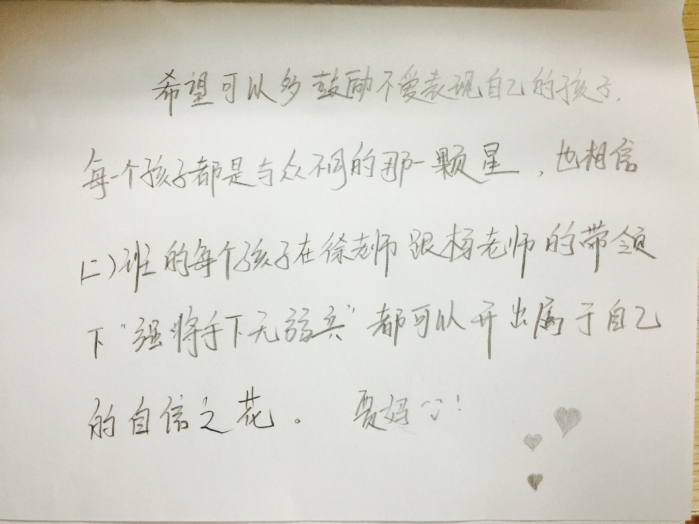 希望可以多鼓励不爱表现自己的孩子.
每一个孩子都是与众不同的那一颗星，也相信
(二)班的每个孩子在徐老师跟杨老师的带领
下“强将手下无弱兵”都可以开出属于自己
的自信之花。 贾妈!